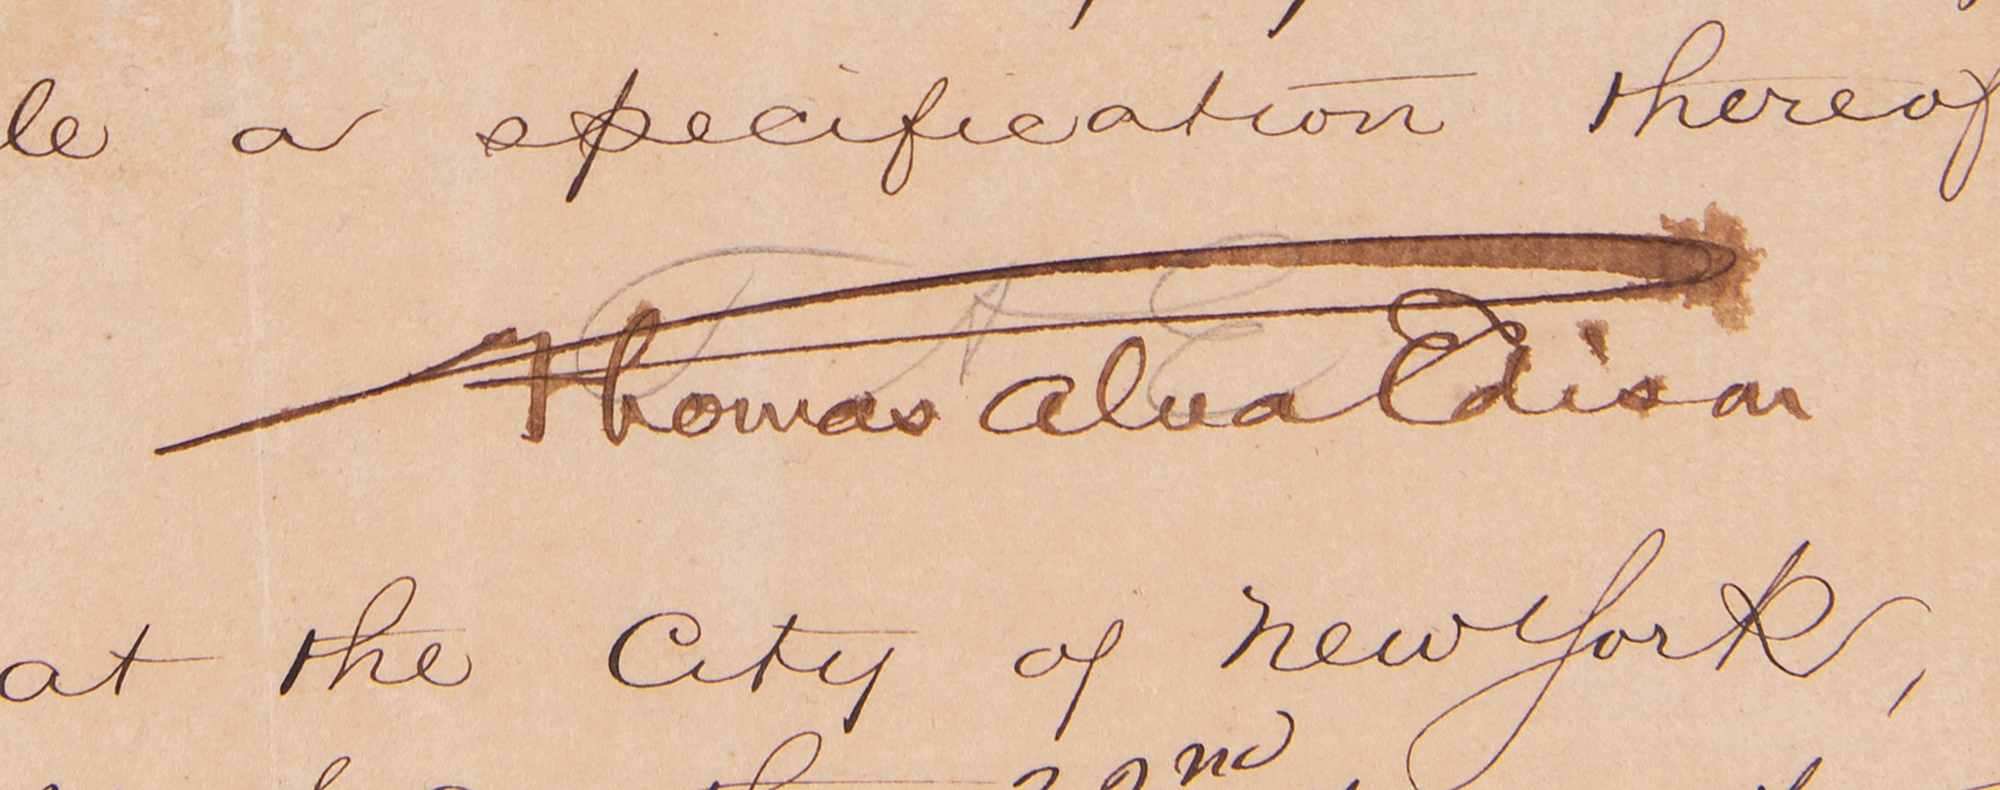 le a specification thereof
T A E
Thomas Alva Edison
at the City of New York,
22nd